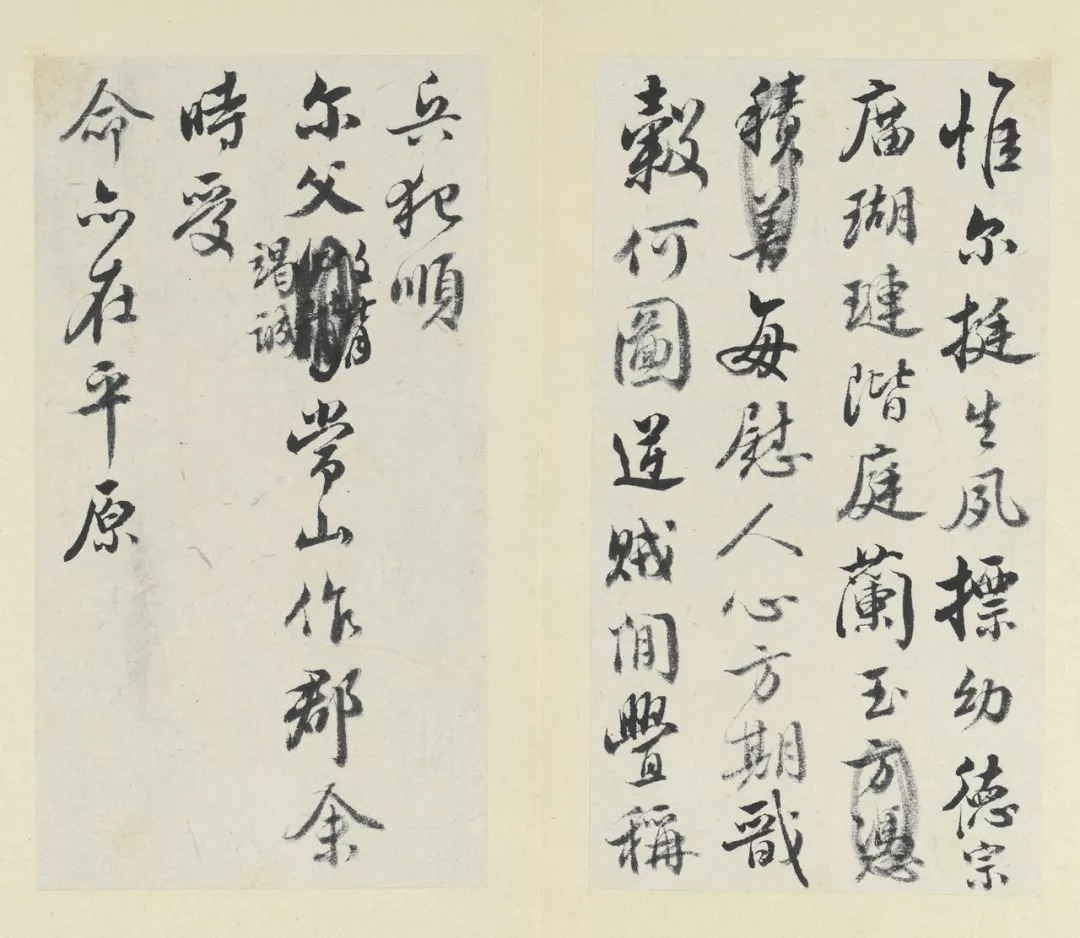 惟尔挺生夙標幼德宗
廟瑚璉階庭蘭玉方憑
積善每慰人心方期戩
穀何圖逆賊閒釁稱
兵犯順
尔父竭誠常山作郡余
時受
命亦在平原